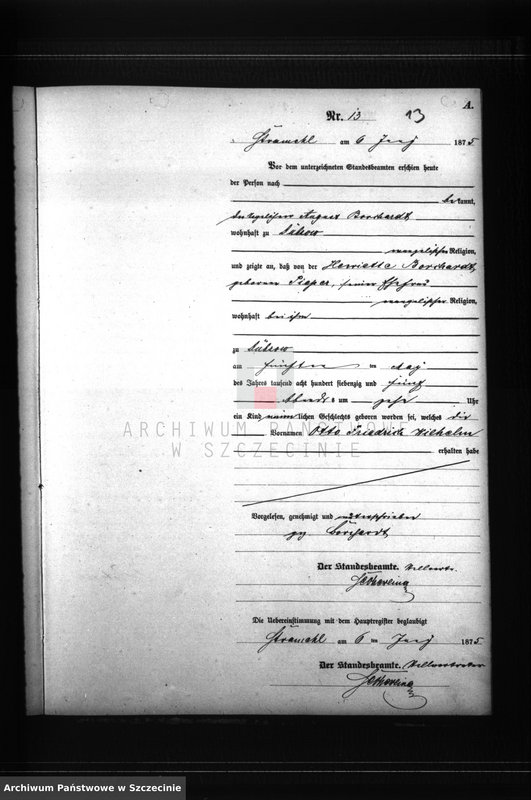 A.
Nr. 13 13
am 6 187 5
Vor dem unterzeichneten Standesbeamten erschien heute
der Person nach
be kannt,
August Borchardt
wohnhaft zu
evangelischer Religion,
und zeigte an, daß von der Henriette Borchardt,
geborenen Pieper, seiner Ehefrau
evangelischer Religion,
wohnhaft bei ihm
zu
am ten
des Jahres tausend acht hundert siebenzig und fünf
Abends um zehn Uhr
ein Kind männlichen Geschlechts geboren worden sei, welches die
Vornamen Otto Friedrich Wilhelm
erhalten habe
Vorgelesen, genehmigt und unterschrieben
gez Borchardt
Der Standesbeamte.
Die Uebereinstimmung mit dem Hauptregister beglaubigt
am 6 ten 187 5
Der Standesbeamte. Stellvertreter
ARCHIWUM PAŃSTWOWE
W SZCZECINIE
Archiwum Państwowe w Szczecinie